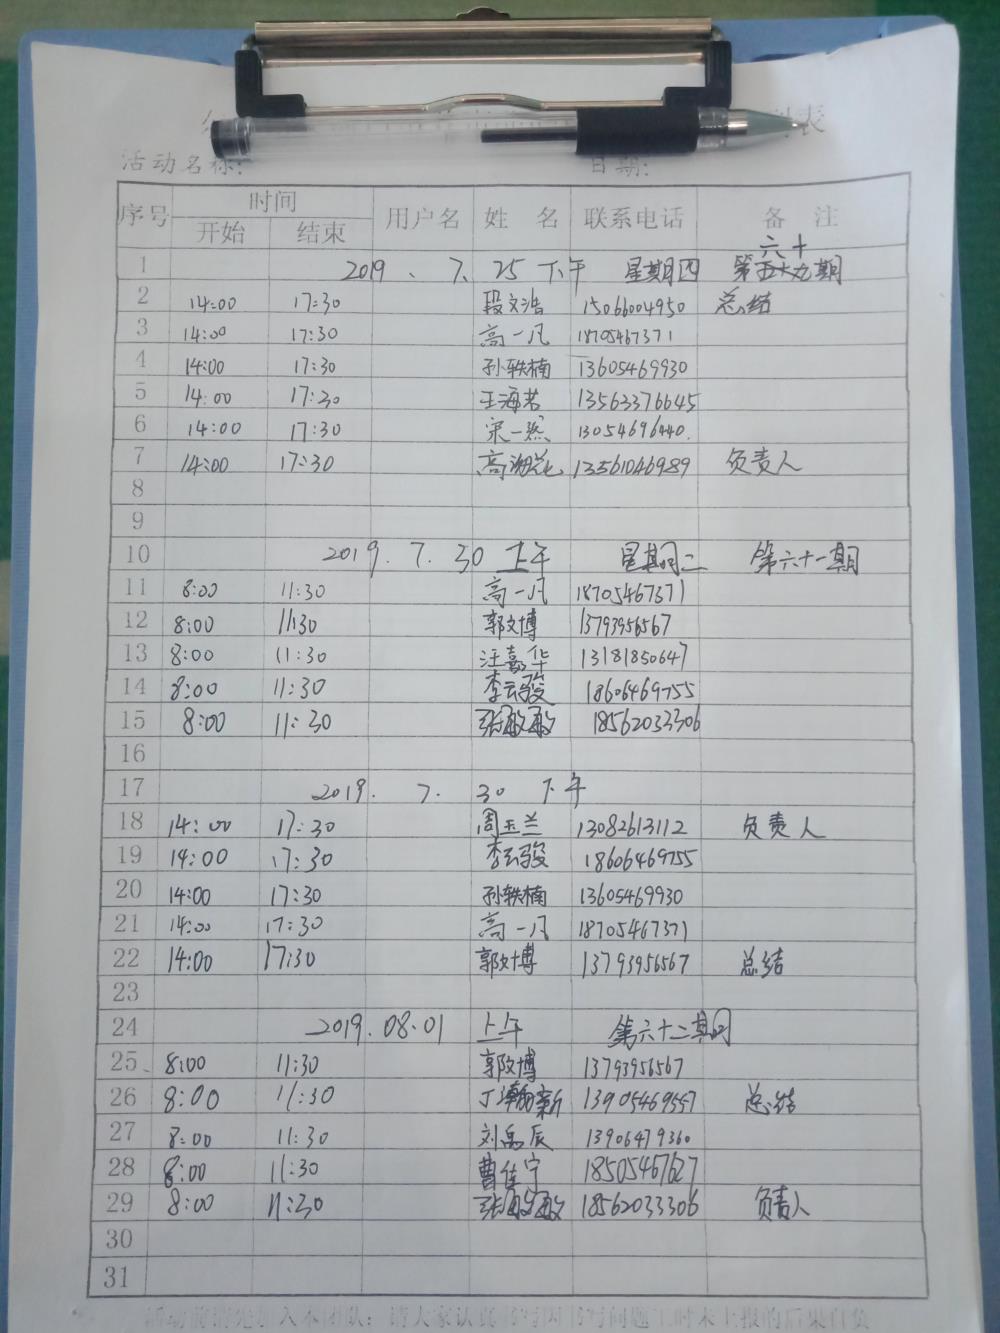 表
活动名称: 日期:
序号 时间 用户名 姓 名 联系电话 备 注
开始 结束
六十
1 2019、7、25 下午 星期四 第五十九期
2 14:00 17:30 段文浩 15066004950 总结
3 14:00 17:30 高一凡 18705467371
4 14:00 17:30 孙轶楠 13605469930
5 14:00 17:30 王海若 13563376645
6 14:00 17:30 宋一然 13054696440.
7 14:00 17:30 高湘花 13561046989 负责人
8
9
10 2019.7.30 上午 星期二 第六十一期
11 8:00 11:30 高一凡 18705467371
12 8:00 11:30 郭文博 13793956567
13 8:00 11:30 汪嘉华 13181850647
14 8:00 11:30 李云骏 18606469755
15 8:00 11:30 张敏敏 18562033306
16
17 2019. 7. 30 下午
18 14:00 17:30 周玉兰 13082613112 负责人
19 14:00 17:30 李云骏 18606469755
20 14:00 17:30 孙轶楠 13605469930
21 14:00 17:30 高一凡 18705467371
22 14:00 17:30 郭文博 13793956567 总结
23
24 2019.08.01 上午 第六十二期
25 8:00 11:30 郭文博 13793956567
26 8:00 11:30 丁瀚新 13905469557 总结
27 8:00 11:30 刘禹辰 13906479360
28 8:00 11:30 曹佳宁 18505467627
29 8:00 11:30 张敏敏 18562033306 负责人
30
31
活动前请先加入本团队：请大家认真书写因书写问题工时未上报的后果自负